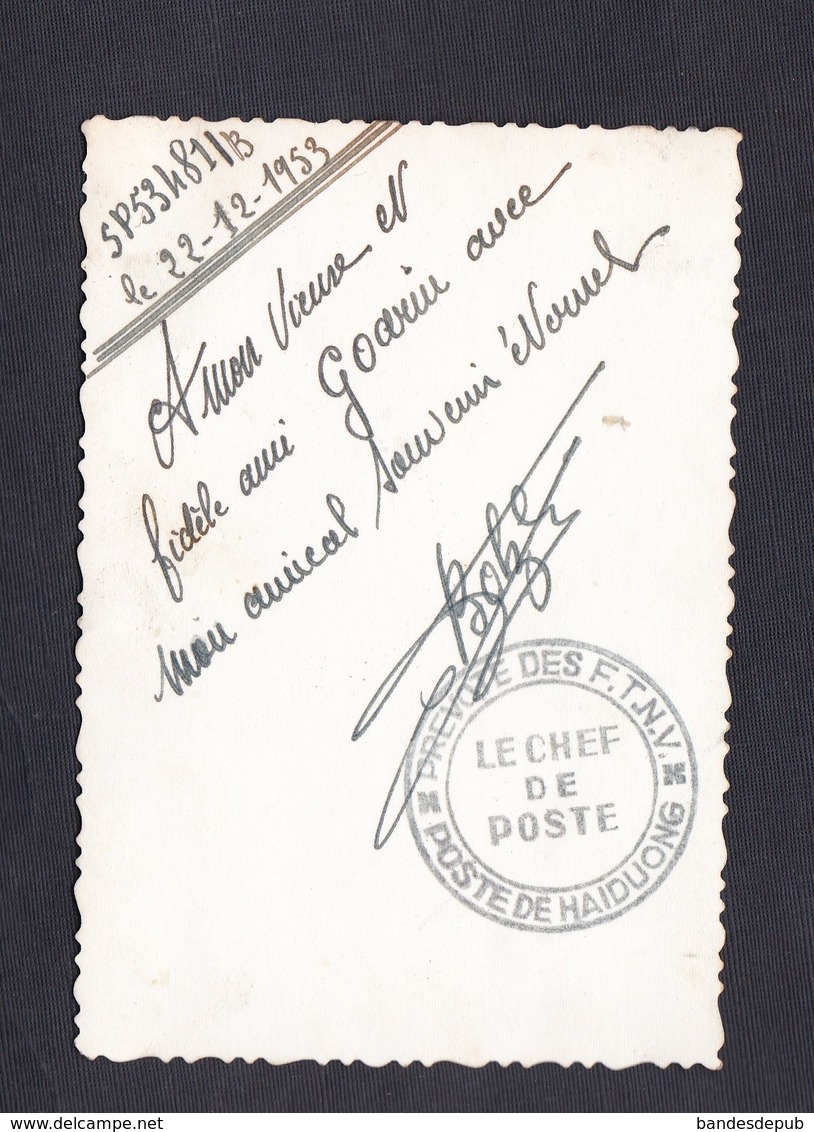 SP53481/B
le 22-12-1953
A mon Vieux et
fidèle ami Goarin avec
mon amical Souvenir éternel
PREVOTE DES F.T.N.V.
LE CHEF
DE
POSTE
POSTE DE HAIDUONG
bandesdepub